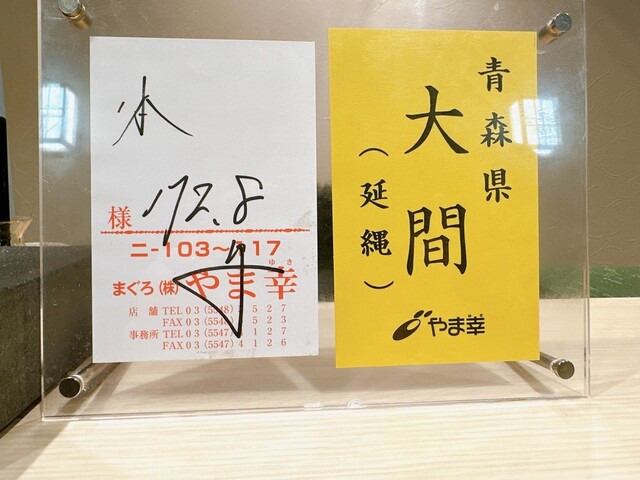 様 172.8
ニ-103~117
まぐろ(株)やま幸
ゆき
店舗 TEL 03(5548) 527
FAX 03(554 523
事務所 TEL 03(5547) 127
FAX 03(5547)4126
青森県
大間
(延縄)
やま幸